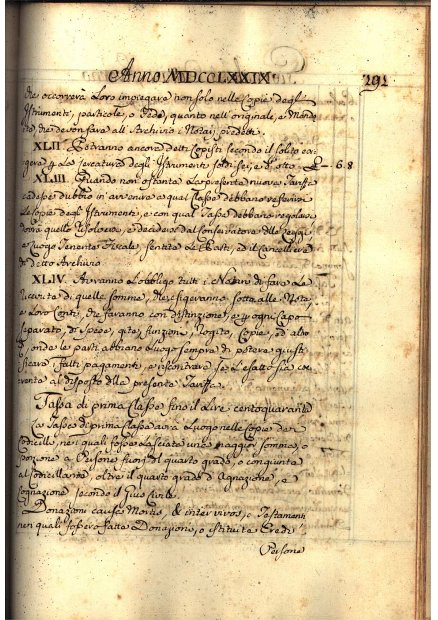 Anno MDCCLXXIX
292
che occorrerà Loro impiegare non solo nelle Copie degli
Istrumenti, particole, o Fede, quanto nell' originale, e Mondo
che devon fare all' Archivio i Notaj predetti.
XLII. Potranno ancora detti Copisti secondo il solito
La cercatura degli Istrumenti soldi sei, e 8. 6. 8
XLIII. Quando non ostante La presente nuova Tariffa
cadesse dubbio in avvenire a qual Classe debbano referirsi
Le Copie degli Istrumenti, e con qual Tassa debbano regolarsi
dovrà quello risolversi, e decidersi dal Conservatore delle Leggi
e Luogo Tenente Fiscale sentite Le Parti, ed il Cancelliere
di detto Archivio
XLIV. Avranno L'obbligo tutti i Notari di fare La
Ricevuta di quelle somme, che esigeranno sotto alle Note,
e Loro Conti, che faranno con distinzione, e ogni Capo
separato, di Spese, gite, funzioni, Rogito, Copie, ed altro
onde le parti abbiano Luogo sempre di potere giusti
ficare i fatti pagamenti, e riscontrare se L'esatto sia
al disposto della presente Tariffa.
Tassa di prima Classe fino il Lire centoquaranta
La Tassa di prima Classe avrà Luogo nelle Copie dei
Codicilli, nei quali fosse Lasciata una maggior somma, o
porzione a Persone fuori del quarto grado, o congiunta
al Codicillante, oltre il quarto grado d'Agnazione, e
Cognazione secondo il Jus Civile.
Donazioni causa Mortis, & inter vivos, o Testamenti
nei quali fossero fatte Donazioni, o istituite Eredi
Persone